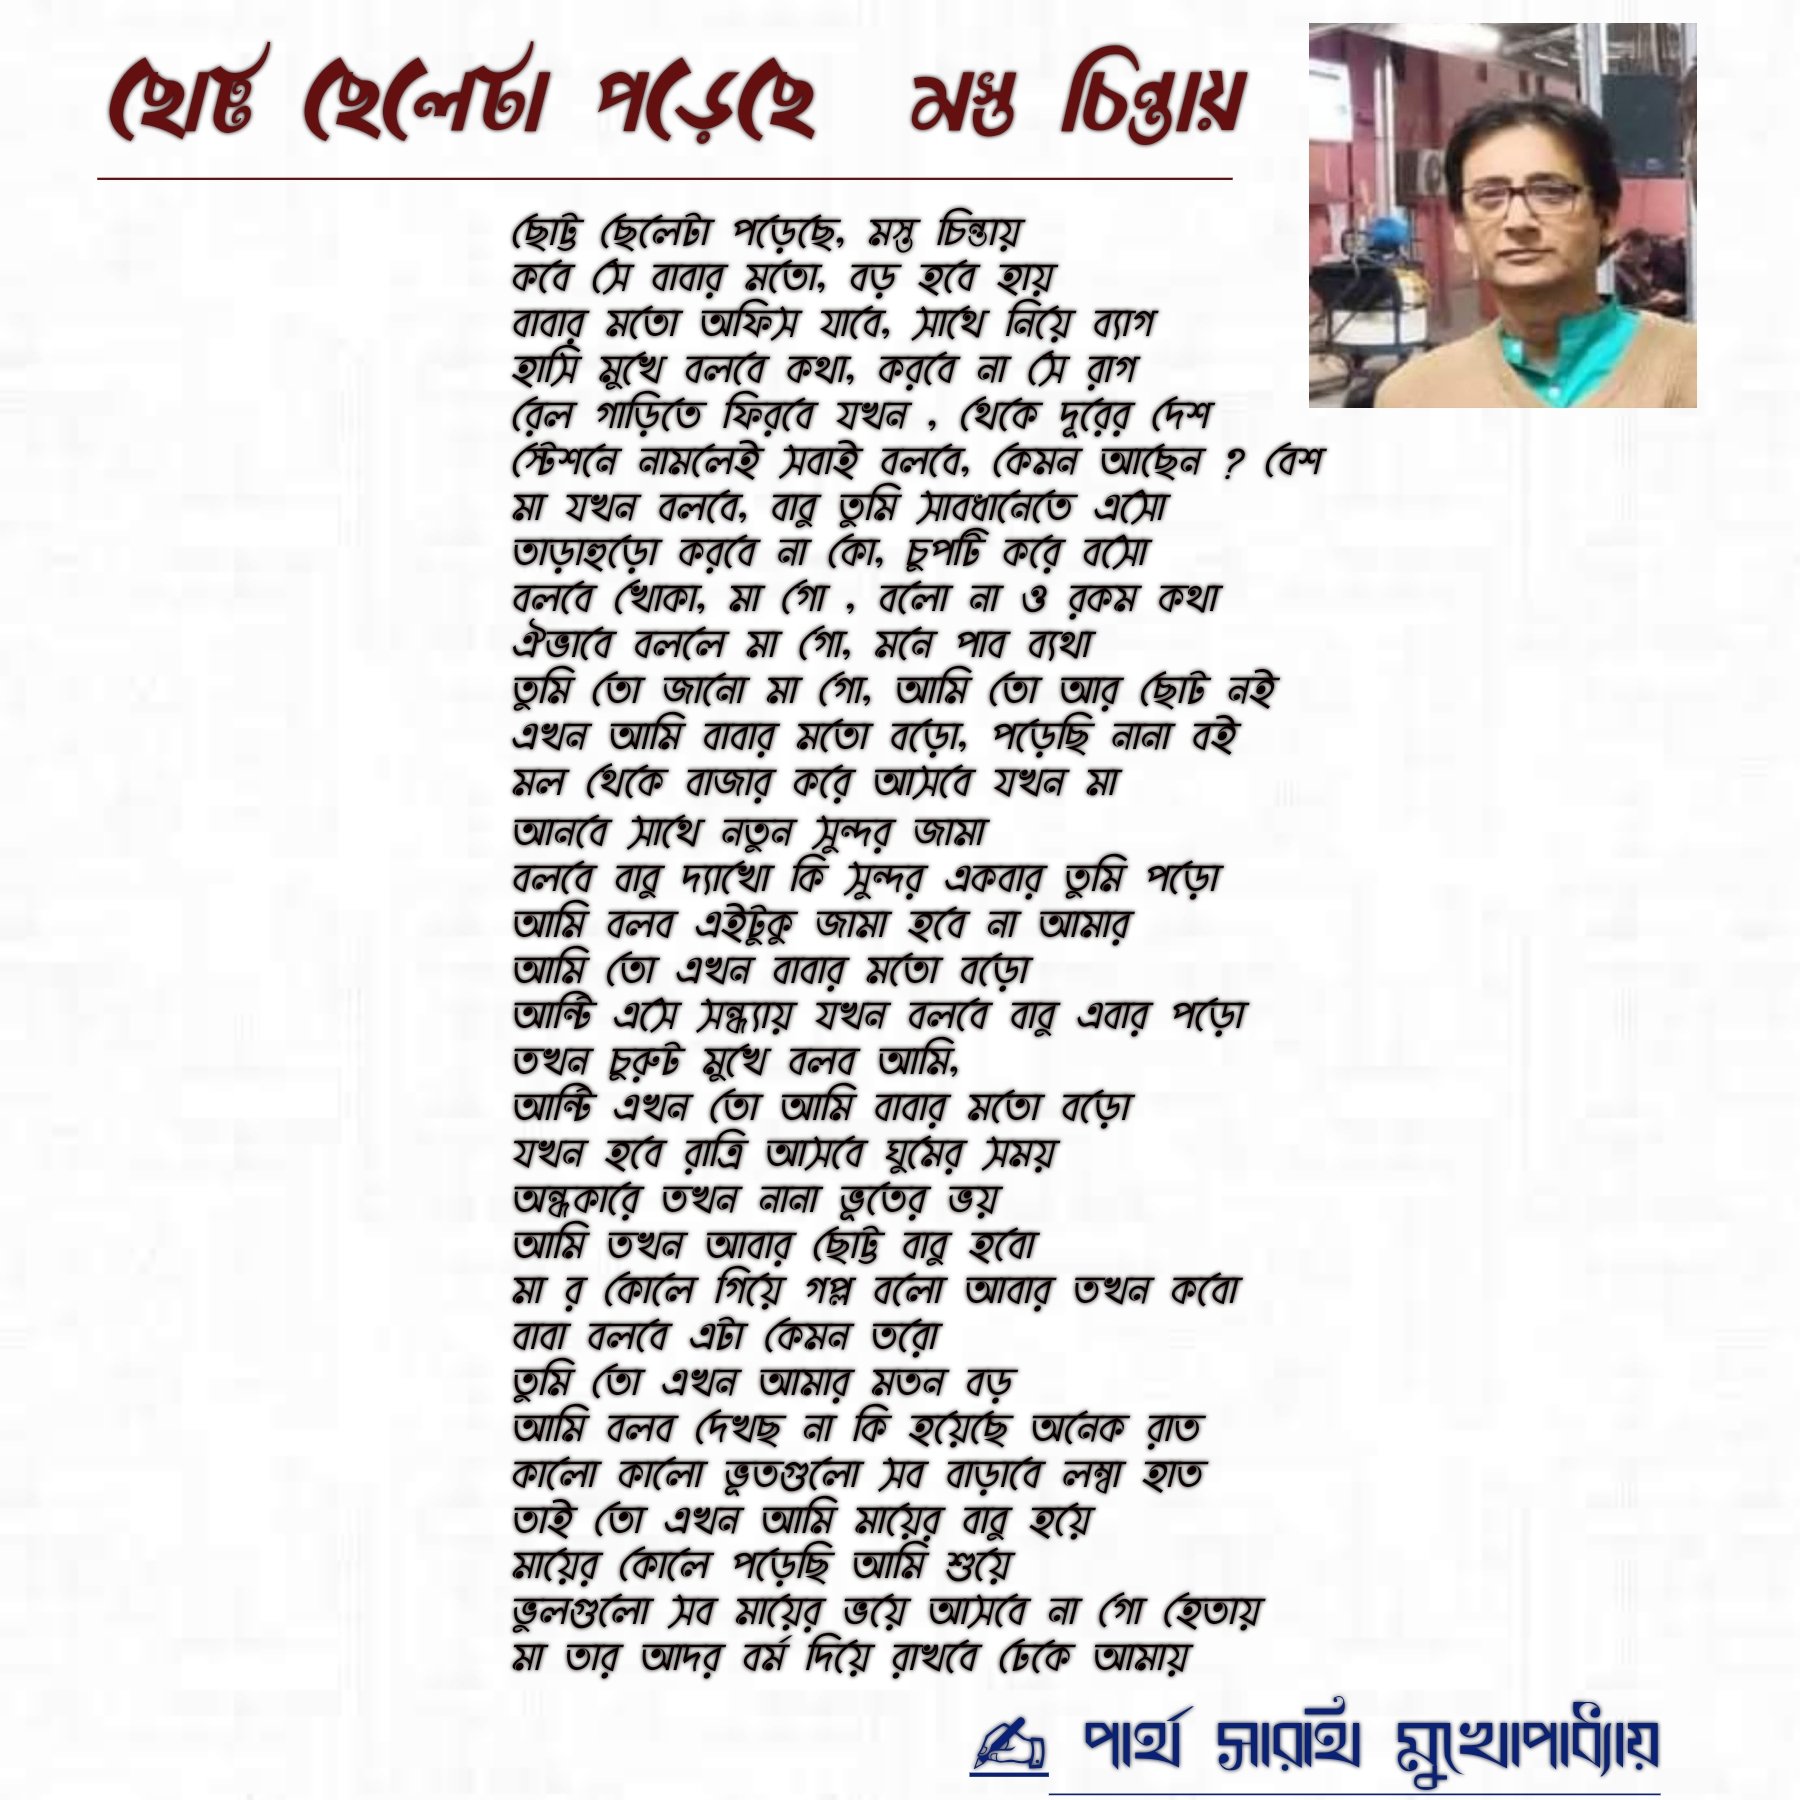 ছোট্ট ছেলেটা পড়েছে মস্ত চিন্তায়
ছোট্ট ছেলেটা পড়েছে, মস্ত চিন্তায়
কবে সে বাবার মতো, বড় হবে হায়
বাবার মতো অফিস যাবে, সাথে নিয়ে ব্যাগ
হাসি মুখে বলবে কথা, করবে না সে রাগ
রেল গাড়িতে ফিরবে যখন , থেকে দূরের দেশ
স্টেশনে নামলেই সবাই বলবে, কেমন আছেন ? বেশ
মা যখন বলবে, বাবু তুমি সাবধানেতে এসো
তাড়াহুড়ো করবে না কো, চুপটি করে বসো
বলবে খোকা, মা গো , বলো না ও রকম কথা
ঐভাবে বললে মা গো, মনে পাব ব্যথা
তুমি তো জানো মা গো, আমি তো আর ছোট নই
এখন আমি বাবার মতো বড়ো, পড়েছি নানা বই
মল থেকে বাজার করে আসবে যখন মা
আনবে সাথে নতুন সুন্দর জামা
বলবে বাবু দ্যাখো কি সুন্দর একবার তুমি পড়ো
আমি বলব এইটুকু জামা হবে না আমার
আমি তো এখন বাবার মতো বড়ো
আন্টি এসে সন্ধ্যায় যখন বলবে বাবু এবার পড়ো
তখন চুরুট মুখে বলব আমি,
আন্টি এখন তো আমি বাবার মতো বড়ো
যখন হবে রাত্রি আসবে ঘুমের সময়
অন্ধকারে তখন নানা ভূতের ভয়
আমি তখন আবার ছোট্ট বাবু হবো
মা র কোলে গিয়ে গপ্ল বলো আবার তখন কবো
বাবা বলবে এটা কেমন তরো
তুমি তো এখন আমার মতন বড়
আমি বলব দেখছ না কি হয়েছে অনেক রাত
কালো কালো ভূতগুলো সব বাড়াবে লম্বা হাত
তাই তো এখন আমি মায়ের বাবু হয়ে
মায়ের কোলে পড়েছি আমি শুয়ে
ভুলগুলো সব মায়ের ভয়ে আসবে না গো হেতায়
মা তার আদর বর্ম দিয়ে রাখবে ঢেকে আমায়
✍ পার্থ সারথি মুখোপাধ্যায়